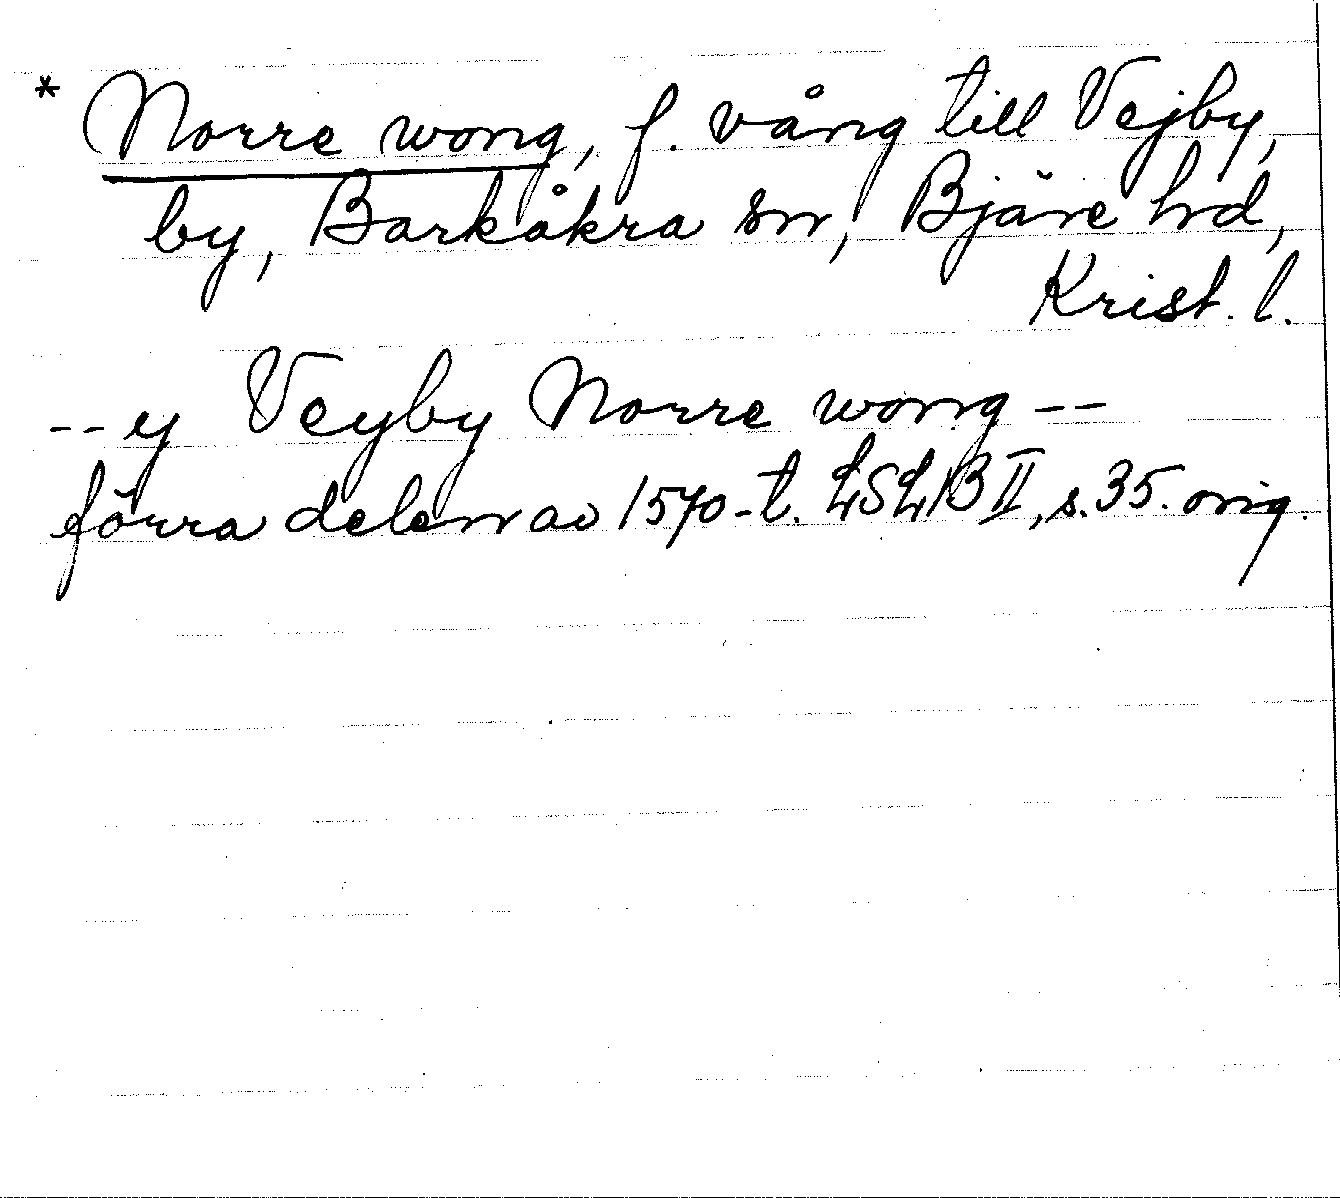 * Norre wong, f. vång till Vejby,
by, Barkåkra sn, Bjäre hd,
Krist. l.
-- y Veyby Norre wong --
förra delen av 1570-t. LSLB II, s. 35. orig.